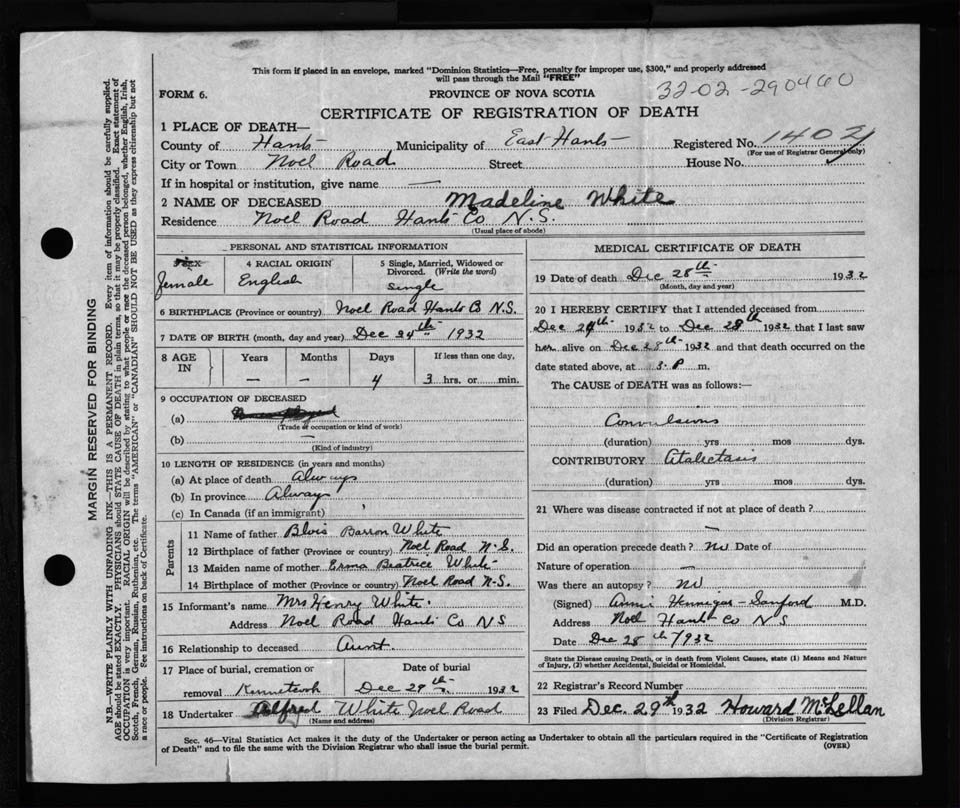 This form if placed in an envelope, marked "Dominion Statistics—Free, penalty for improper use, $300," and properly addressed
will pass through the Mail "FREE"
32-02-290460
FORM 6.
PROVINCE OF NOVA SCOTIA
CERTIFICATE OF REGISTRATION OF DEATH
1 PLACE OF DEATH—
County of Hants Municipality of East Hants Registered No. 1402
(For use of Registrar General only)
City or Town Noel Road Street House No.
If in hospital or institution, give name —
2 NAME OF DECEASED Madeline White
Residence Noel Road Hants Co N.S.
(Usual place of abode)
PERSONAL AND STATISTICAL INFORMATION
3 SEX 4 RACIAL ORIGIN 5 Single, Married, Widowed or Divorced. (Write the word)
female English single
6 BIRTHPLACE (Province or country) Noel Road Hants Co N.S.
7 DATE OF BIRTH (month, day and year) Dec 24th 1932
8 AGE IN Years Months Days If less than one day,
— — 4 3 hrs. or min.
9 OCCUPATION OF DECEASED
(a)
(Trade or occupation or kind of work)
(b) —
(Kind of industry)
10 LENGTH OF RESIDENCE (in years and months)
(a) At place of death Always
(b) In province Always
(c) In Canada (if an immigrant)
Parents
11 Name of father Barron White
12 Birthplace of father (Province or country) Noel Road N.S.
13 Maiden name of mother Erma Beatrice White
14 Birthplace of mother (Province or country) Noel Road N.S.
15 Informant's name Mrs Henry White.
Address Noel Road Hants Co N S
16 Relationship to deceased Aunt.
17 Place of burial, cremation or removal Kennetcook
Date of burial Dec 29th 1932
18 Undertaker Alfred White Noel Road
(Name and address)
MEDICAL CERTIFICATE OF DEATH
19 Date of death Dec 28th 1932
(Month, day and year)
20 I HEREBY CERTIFY that I attended deceased from
Dec 24th 1932 to Dec 28th 1932 that I last saw
her alive on Dec 28th 1932 and that death occurred on the
date stated above, at 3 P m.
The CAUSE of DEATH was as follows:—
Convulsions
(duration) yrs mos dys.
CONTRIBUTORY Atalectasis
(duration) yrs mos dys.
21 Where was disease contracted if not at place of death?
—
Did an operation precede death? No Date of
Nature of operation —
Was there an autopsy? No
(Signed) Annie Hennigar-Sanford M.D.
Address Noel Hants Co N S
Date Dec 28th/1932
State the Disease causing Death, or in death from Violent Causes, state (1) Means and Nature
of Injury, (2) whether Accidental, Suicidal or Homicidal.
22 Registrar's Record Number
23 Filed Dec. 29th 1932 Howard McLellan
(Division Registrar)
Sec. 46—Vital Statistics Act makes it the duty of the Undertaker or person acting as Undertaker to obtain all the particulars required in the "Certificate of Registration
of Death" and to file the same with the Division Registrar who shall issue the burial permit.
(OVER)
MARGIN RESERVED FOR BINDING
N.B.—WRITE PLAINLY WITH UNFADING INK—THIS IS A PERMANENT RECORD. Every item of information should be carefully supplied.
AGE should be stated EXACTLY. PHYSICIANS should STATE CAUSE OF DEATH in plain terms, so that it may be properly classified. Exact statement of
OCCUPATION is very important. RACIAL ORIGIN will be described by stating to what people or race the deceased person belonged, whether English, Irish,
Scotch, French, German, Russian, Ruthenian, etc. The terms "AMERICAN" or "CANADIAN" SHOULD NOT BE USED as they express citizenship but not
a race or people. See instructions on back of Certificate.